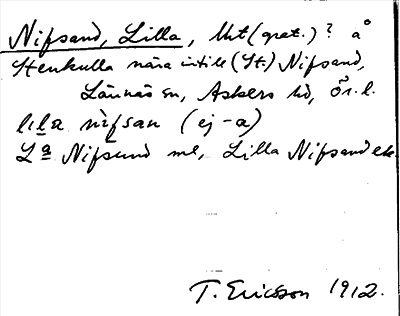 Nifsand, Lilla, Utt (grat.)? å
Stenkulla nära intill (St.) Nifsand,
Lännäs sn, Askers hd, Ör. l.
lıla nifsan (ej -a)
La Nifsund me, Lilla Nifsand ek.
T. Ericsson 1912.